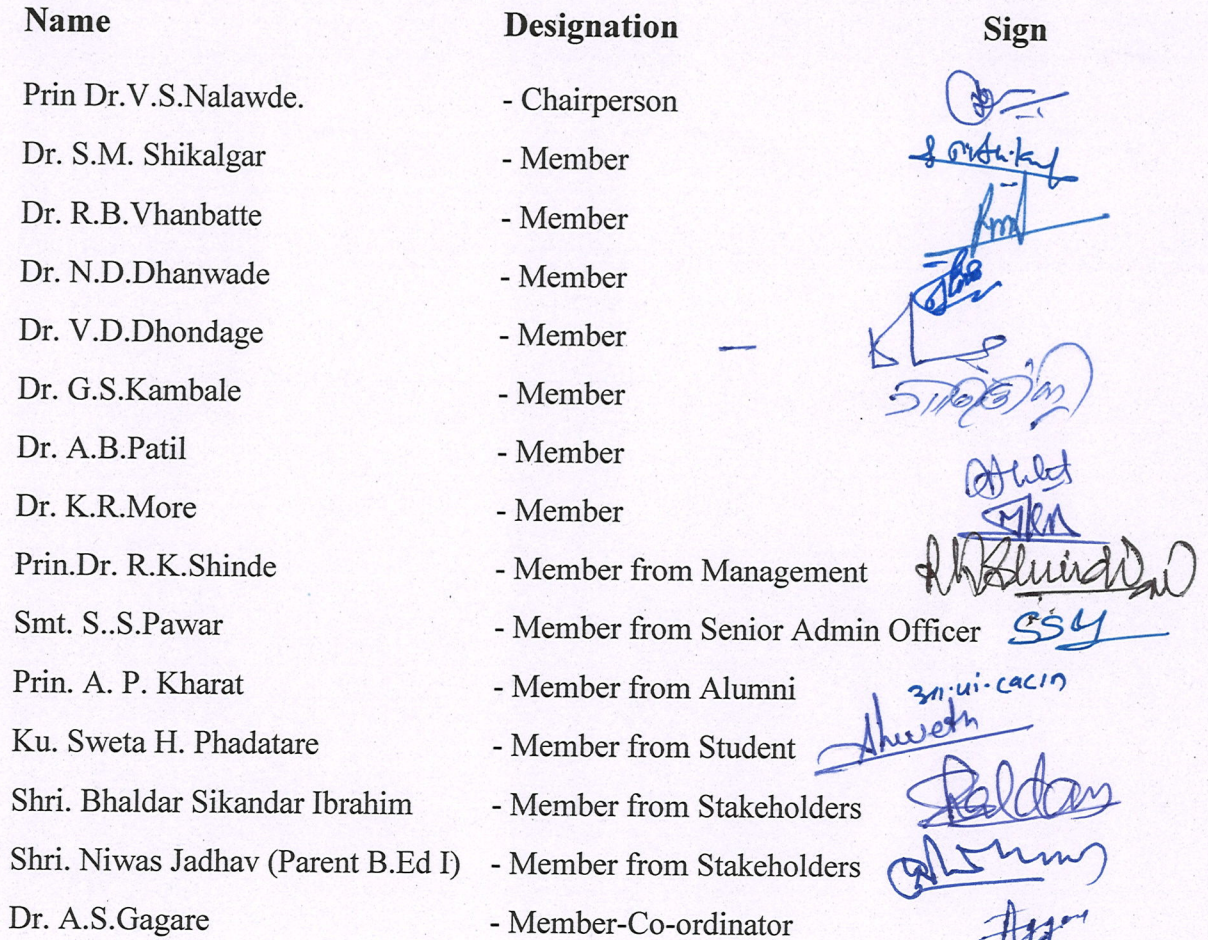 Name Designation Sign
Prin Dr.V.S.Nalawde. - Chairperson
Dr. S.M. Shikalgar - Member
Dr. R.B.Vhanbatte - Member
Dr. N.D.Dhanwade - Member
Dr. V.D.Dhondage - Member —
Dr. G.S.Kambale - Member
Dr. A.B.Patil - Member
Dr. K.R.More - Member
Prin.Dr. R.K.Shinde - Member from Management
Smt. S..S.Pawar - Member from Senior Admin Officer
Prin. A. P. Kharat - Member from Alumni
Ku. Sweta H. Phadatare - Member from Student
Shri. Bhaldar Sikandar Ibrahim - Member from Stakeholders
Shri. Niwas Jadhav (Parent B.Ed I) - Member from Stakeholders
Dr. A.S.Gagare - Member-Co-ordinator